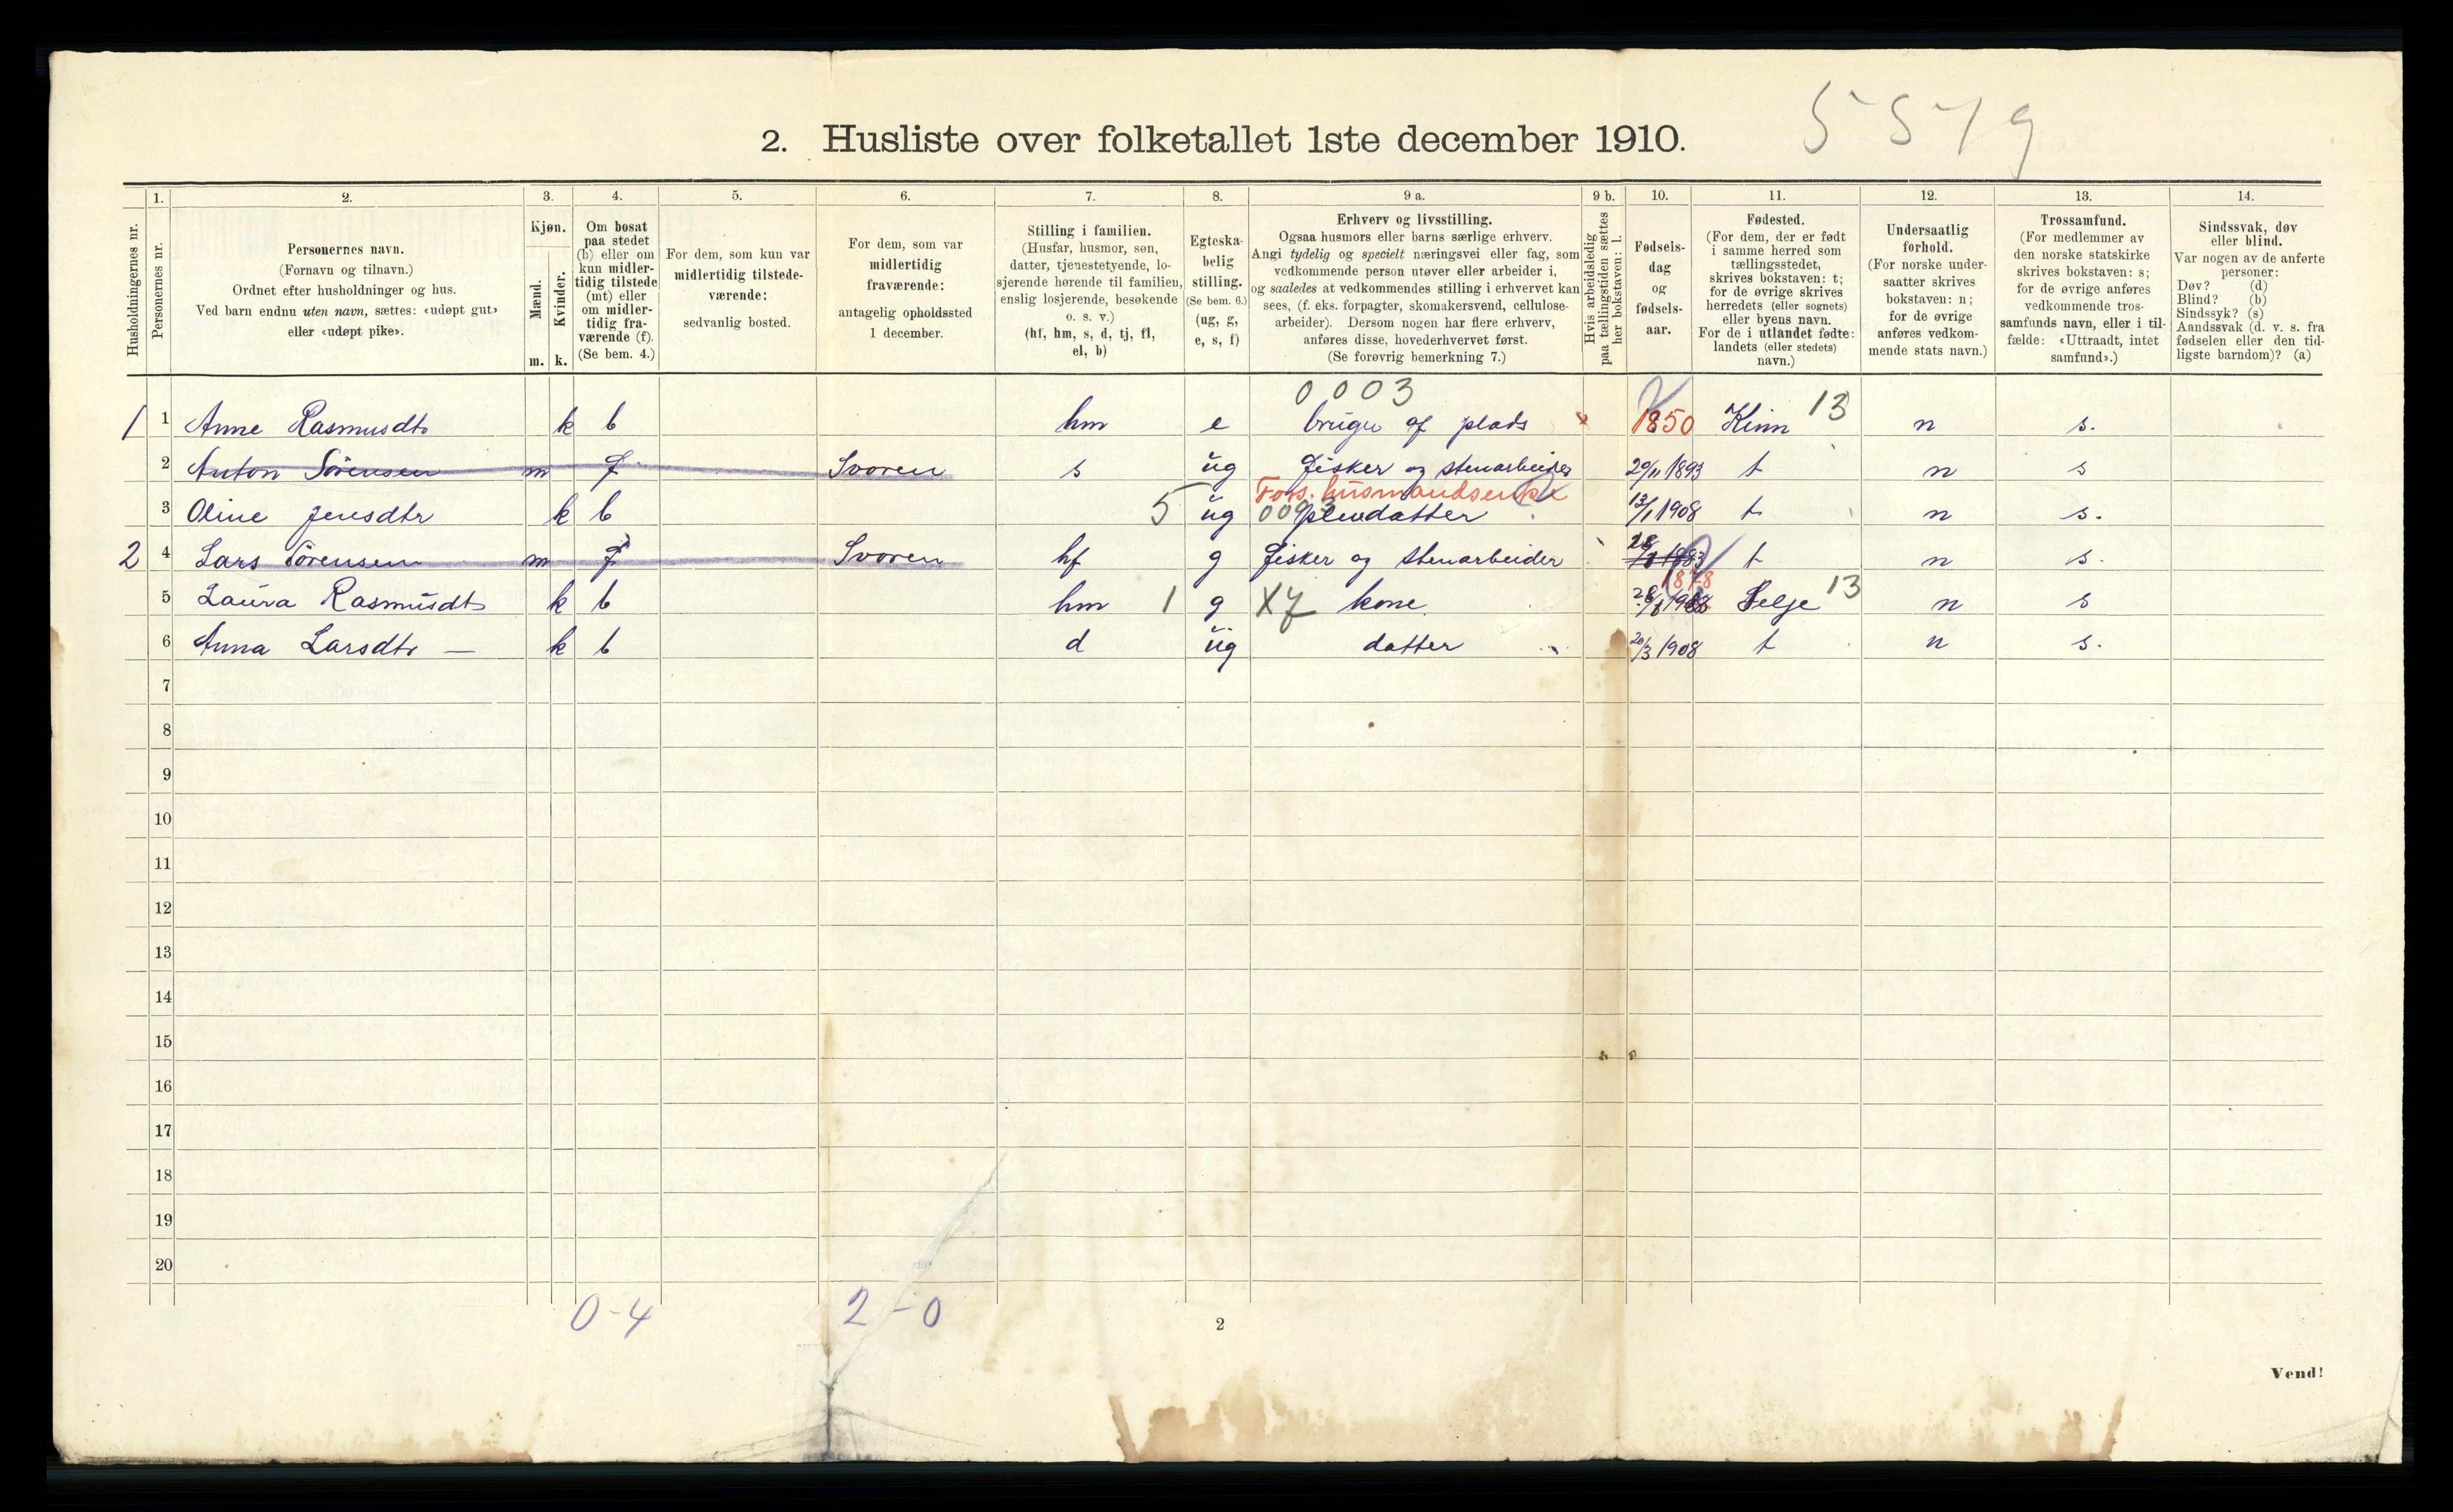 5579
2. Husliste over folketallet 1ste december 1910.
1. 2. 3. 4. 5. 6. 7. 8. 9 a. 9 b. 10. 11. 12. 13. 14.
Husholdningernes nr.
Personernes nr.
Personernes navn.
(Fornavn og tilnavn.)
Ordnet efter husholdninger og hus.
Ved barn endnu uten navn, sættes: «udøpt gut»
eller «udøpt pike».
Kjøn.
Mænd.
m.
Kvinder.
k.
Om bosat
paa stedet
(b) eller om
kun midler-
tidig tilstede
(mt) eller
om midler-
tidig fra-
værende (f).
(Se bem. 4.)
For dem, som kun var
midlertidig tilstede-
værende:
sedvanlig bosted.
For dem, som var
midlertidig
fraværende:
antagelig opholdssted
1 december.
Stilling i familien.
(Husfar, husmor, søn,
datter, tjenestetyende, lo-
sjerende hørende til familien,
enslig losjerende, besøkende
o. s. v.)
(hf, hm, s, d, tj, fl,
el, b)
Egteska-
belig
stilling.
(Se bem. 6.)
(ug, g,
e, s, f)
Erhverv og livsstilling.
Ogsaa husmors eller barns særlige erhverv.
Angi tydelig og specielt næringsvei eller fag, som
vedkommende person utøver eller arbeider i,
og saaledes at vedkommendes stilling i erhvervet kan
sees, (f. eks. forpagter, skomakersvend, cellulose-
arbeider). Dersom nogen har flere erhverv,
anføres disse, hovederhvervet først.
(Se forøvrig bemerkning 7.)
Hvis arbeidsledig
paa tællingstiden sættes
her bokstaven: l.
Fødsels-
dag
og
fødsels-
aar.
Fødested.
(For dem, der er født
i samme herred som
tællingsstedet,
skrives bokstaven: t;
for de øvrige skrives
herredets (eller sognets)
eller byens navn.
For de i utlandet fødte:
landets (eller stedets)
navn.)
Undersaatlig
forhold.
(For norske under-
saatter skrives
bokstaven: n;
for de øvrige
anføres vedkom-
mende stats navn.)
Trossamfund.
(For medlemmer av
den norske statskirke
skrives bokstaven: s;
for de øvrige anføres
vedkommende tros-
samfunds navn, eller i til-
fælde: «Uttraadt, intet
samfund».)
Sindssvak, døv
eller blind.
Var nogen av de anførte
personer:
Døv? (d)
Blind? (b)
Sindssyk? (s)
Aandssvak (d. v. s. fra
fødselen eller den tid-
ligste barndom)? (a)
0003
1 1 Anne Rasmusdtr k b hm e bruger af plads 1850 Kinn 13 n s.
2 Anton Sörensen m f Svoren s ug fisker og stenarbeider 20/11 1893 t n s
Fors. husmandsenke
3 Oline Jensdtr k b 5 ug 0093 pleiedatter 13/1 1908 t n s.
2 4 Lars Sörensen m f Svoren hf g fisker og stenarbeider 1883 t n s.
1878
5 Laura Rasmusdtr k b hm 1 g X7 kone 28/8 Selje 13 n s
6 Anna Larsdtr — k b d ug datter 20/3 1908 t n s.
7
8
9
10
11
12
13
14
15
16
17
18
19
20
0-4 2-0
2
Vend!